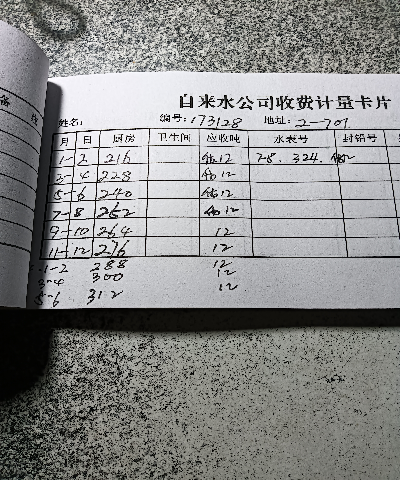 备
自来水公司收费计量卡片
姓名: 编号: 173128 地址: 2-701
月 日 厨房 卫生间 应收吨 水表号 封铅号
1-2 216 12 78.324.
3-4 228 12
5-6 240 12
7-8 252 12
9-10 264 12
11-12 276 12
1-2 288 12
3-4 300 12
5-6 312 12